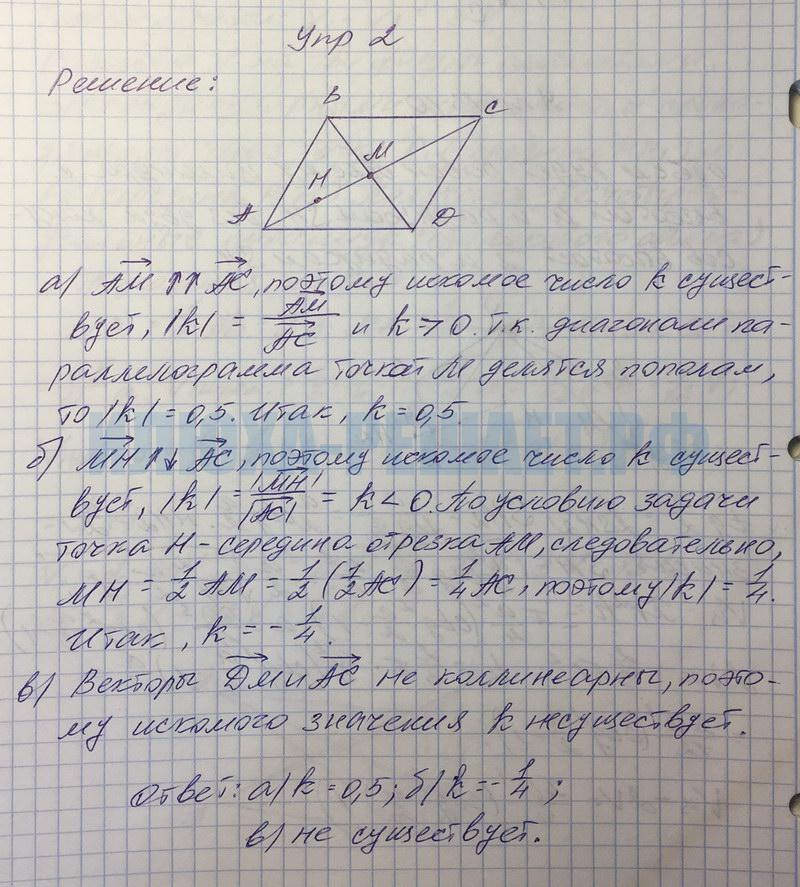 Упр 2
Решение:
B
C
M
H
A
D
а) AM ↑↑ AC, поэтому искомое число k сущест-
вует, |k| = AM/AC и k > 0. т.к. диагонали па-
раллелограмма точкой M делятся пополам,
то |k| = 0,5. Итак, k = 0,5.
б) MH ↑↓ AC, поэтому искомое число k сущест-
вует, |k| = |MH|/|AC| = k < 0. По условию задачи
точка H - середина отрезка AM, следовательно,
MH = 1/2 AM = 1/2 (1/2 AC) = 1/4 AC, поэтому |k| = 1/4.
Итак, k = - 1/4.
в) Векторы DM и AC не коллинеарны, поэто-
му искомого значения k не существует.
Ответ: а) k = 0,5; б) k = - 1/4;
в) не существует.